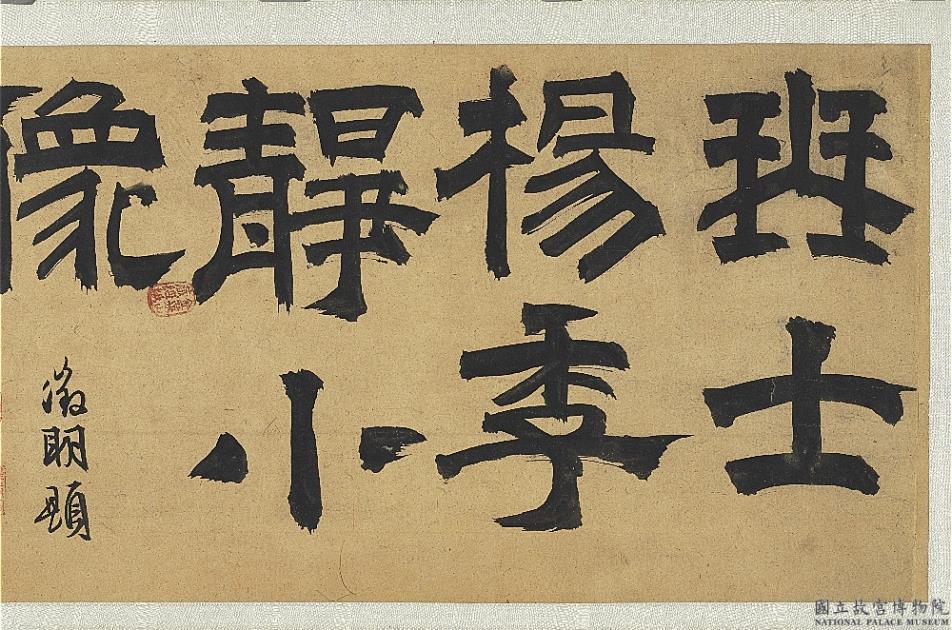 士
楊季
靜小
像
徵明題
國立故宮博物院
NATIONAL PALACE MUSEUM